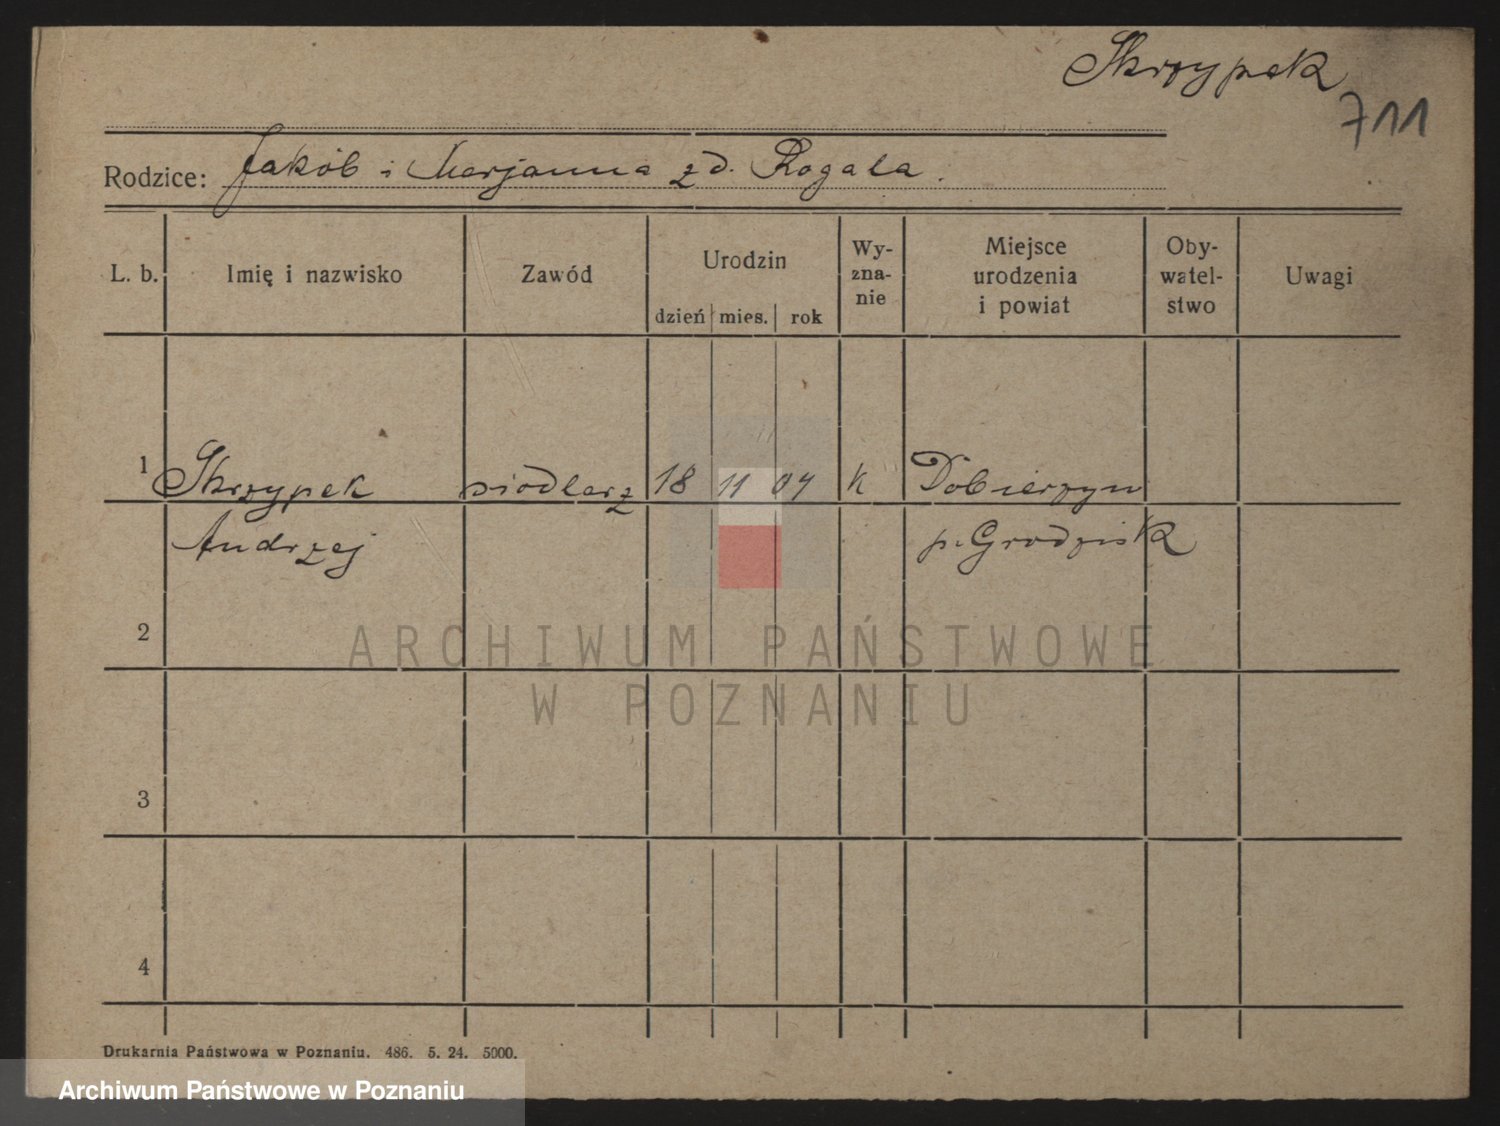 Skrzypek
711
Rodzice: Jakób i Marjanna z d. Rogala.
L. b. Imię i nazwisko Zawód Urodzin dzień mies. rok Wy- zna- nie Miejsce urodzenia i powiat Oby- watel- stwo Uwagi
1 Skrzypek siodlarz 18 11 04 k Dobierzyn
Andrzej p. Grodzisk
2
3
4
ARCHIWUM PAŃSTWOWE
W POZNANIU
Drukarnia Państwowa w Poznaniu. 486. 5. 24. 5000.
Archiwum Państwowe w Poznaniu